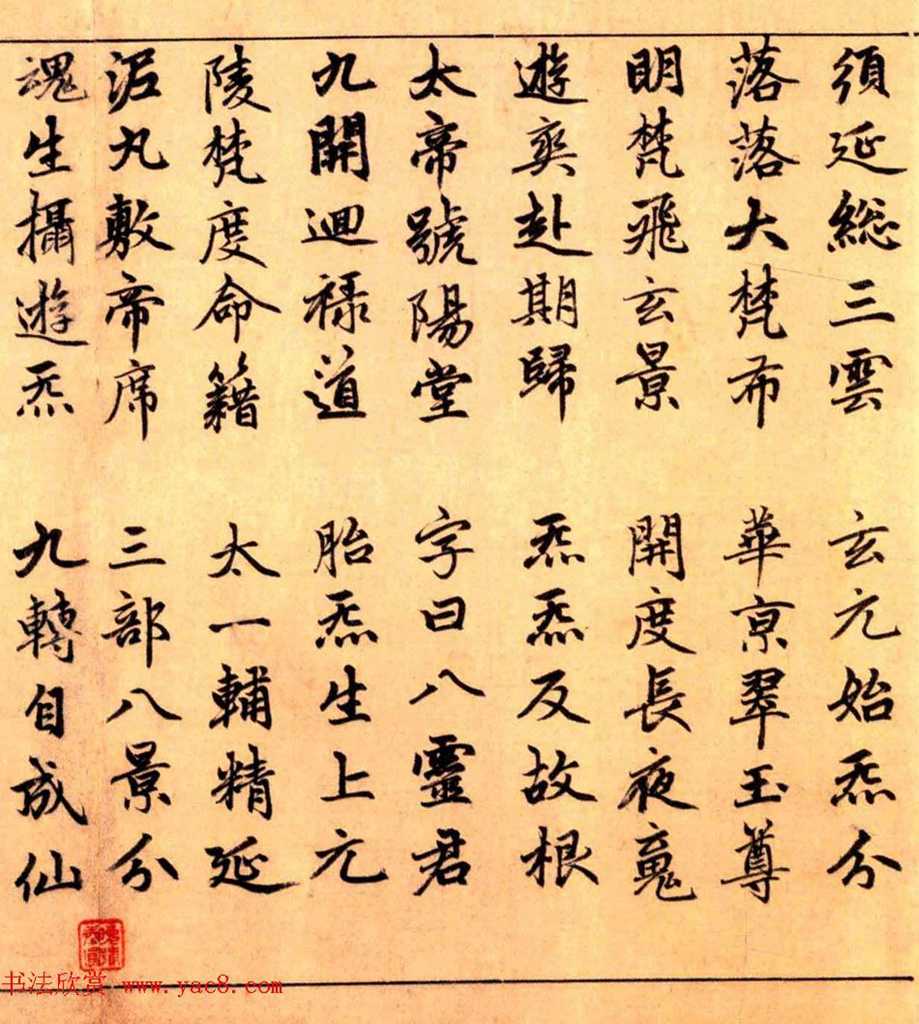 須延総三雲 玄元始炁分
落落大梵布 華京翠玉尊
明梵飛玄景 開度長夜魂
遊爽赴期歸 炁炁反故根
太帝號陽堂 字曰八靈君
九開迴祿道 胎炁生上元
陵梵度命籍 太一輔精延
泥丸敷帝席 三部八景分
魂生攝遊炁 九轉自成仙
书法欣赏 www.yac8.com